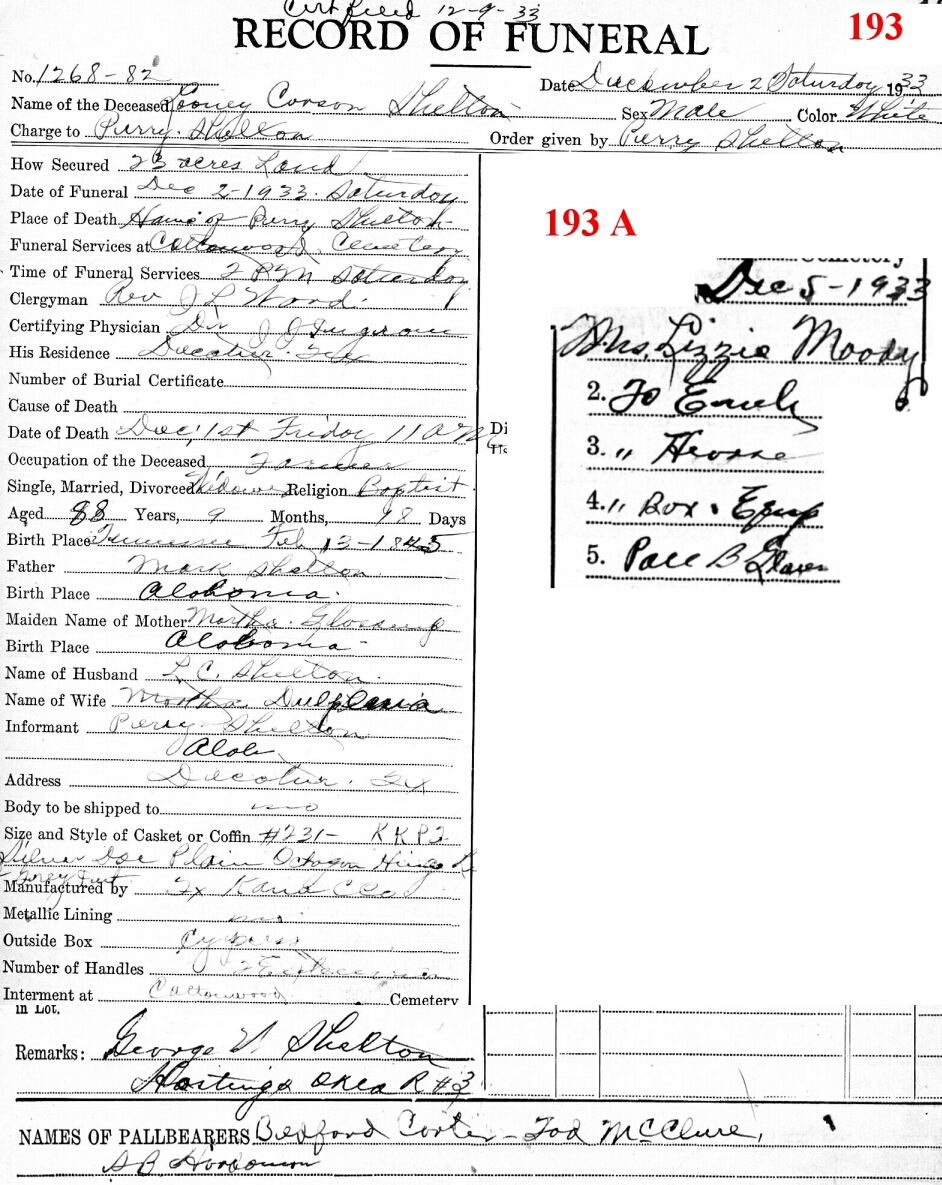 Cert filed 12-9-33
RECORD OF FUNERAL
193
No. 1268-82 Date December 2 Saturday 1933
Name of the Deceased Looney Corson Shelton Sex Male Color White
Charge to Perry Shelton Order given by Perry Shelton
How Secured 23 acres Land
Date of Funeral Dec 2-1933. Saturday
Place of Death Home of Perry Shelton
Funeral Services at Cottonwood Cemetery
Time of Funeral Services 2 P.M Saturday
Clergyman Rev J L Wood.
Certifying Physician Dr J J Ingram
His Residence Decatur. Tex
Number of Burial Certificate
Cause of Death
Date of Death Dec, 1st Friday 11 A M Di
Occupation of the Deceased Farmer
Single, Married, Divorced Widower Religion Baptist
Aged 88 Years, 9 Months, 18 Days
Birth Place Tennessee Feb 13-1845
Father Mark Shelton
Birth Place Alabama.
Maiden Name of Mother Martha.
Birth Place Alabama
Name of Husband L, C, Shelton.
Name of Wife Martha
Informant Perry Shelton
Address Decatur. Tx
Body to be shipped to no
Size and Style of Casket or Coffin #231- K K P 2
Silver Plain Octagon Hinge
Manufactured by Tx
Metallic Lining no.
Outside Box Cypress
Number of Handles
Interment at Cottonwood Cemetery
in Lot.
Remarks: George W Shelton
Hastings Okla R #3
NAMES OF PALLBEARERS Bedford Carter - Tod McClure,
193 A
Cemetery
No. Dec 5-1933
Mrs, Lizzie Moody
2. To Emb
3. " Hearse
4. " Box. Equp
5. Pall B Gloves